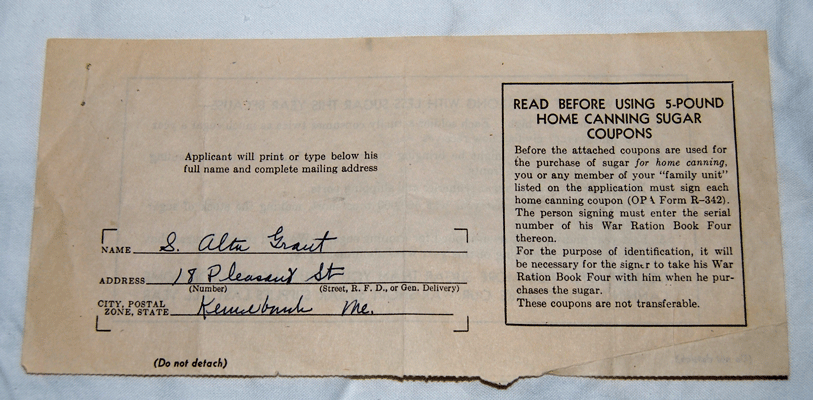 Applicant will print or type below his
full name and complete mailing address
NAME S. Alta Grant
ADDRESS 18 Pleasant St
(Number) (Street, R. F. D., or Gen. Delivery)
CITY, POSTAL
ZONE, STATE Kennebunk Me.
(Do not detach)
READ BEFORE USING 5-POUND
HOME CANNING SUGAR
COUPONS
Before the attached coupons are used for
the purchase of sugar for home canning,
you or any member of your "family unit"
listed on the application must sign each
home canning coupon (OPA Form R-342).
The person signing must enter the serial
number of his War Ration Book Four
thereon.
For the purpose of identification, it will
be necessary for the signer to take his War
Ration Book Four with him when he pur-
chases the sugar.
These coupons are not transferable.